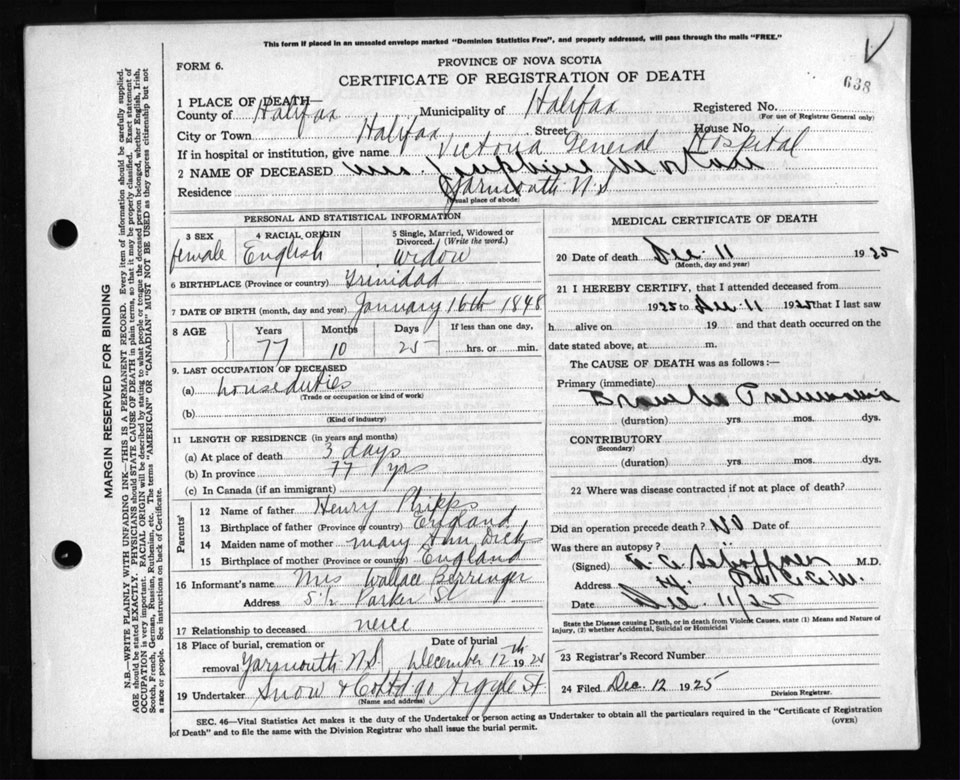 This form if placed in an unsealed envelope marked "Dominion Statistics Free", and properly addressed, will pass through the mails "FREE."
FORM 6.
PROVINCE OF NOVA SCOTIA
CERTIFICATE OF REGISTRATION OF DEATH
638
1 PLACE OF DEATH—
County of Halifax Municipality of Halifax Registered No.
(For use of Registrar General only)
City or Town Halifax Street House No.
If in hospital or institution, give name Victoria General Hospital
2 NAME OF DECEASED Mrs. Josephine
Residence Yarmouth N.S
(Usual place of abode)
PERSONAL AND STATISTICAL INFORMATION
3 SEX 4 RACIAL ORIGIN 5 Single, Married, Widowed or Divorced. (Write the word.)
female English widow
6 BIRTHPLACE (Province or country) Trinidad
7 DATE OF BIRTH (month, day and year) January 16th 1848
8 AGE Years Months Days If less than one day,
77 10 25 hrs. or min.
9. LAST OCCUPATION OF DECEASED
(a) house duties
(Trade or occupation or kind of work)
(b)
(Kind of industry)
11 LENGTH OF RESIDENCE (in years and months)
(a) At place of death 3 days
(b) In province 77 yrs
(c) In Canada (if an immigrant)
Parents'
12 Name of father Henry Phipps
13 Birthplace of father (Province or country) England
14 Maiden name of mother Mary Ann
15 Birthplace of mother (Province or country) England
16 Informant's name Mrs Wallace Berringer
Address 5½ Parker St
17 Relationship to deceased neice
18 Place of burial, cremation or removal Date of burial
Yarmouth N.S. December 12th 1925
19 Undertaker Snow & Co Argyle St.
(Name and address)
MEDICAL CERTIFICATE OF DEATH
20 Date of death Dec. 11 1925
(Month, day and year)
21 I HEREBY CERTIFY, that I attended deceased from
1925 to Dec. 11 1925 that I last saw
h alive on 19 and that death occurred on the
date stated above, at m.
The CAUSE OF DEATH was as follows:—
Primary (immediate)
Broncho Pneumonia
(duration) yrs. mos. dys.
CONTRIBUTORY
(Secondary)
(duration) yrs. mos. dys.
22 Where was disease contracted if not at place of death?
Did an operation precede death? No Date of
Was there an autopsy?
(Signed) M.D.
Address
Date Dec. 11/25
State the Disease causing Death, or in death from Violent Causes, state (1) Means and Nature of Injury, (2) whether Accidental, Suicidal or Homicidal
23 Registrar's Record Number
24 Filed Dec. 12 1925 Division Registrar.
SEC. 46—Vital Statistics Act makes it the duty of the Undertaker or person acting as Undertaker to obtain all the particulars required in the "Certificate of Registration
of Death" and to file the same with the Division Registrar who shall issue the burial permit. (OVER)
MARGIN RESERVED FOR BINDING
N.B.—WRITE PLAINLY WITH UNFADING INK—THIS IS A PERMANENT RECORD. Every item of information should be carefully supplied.
AGE should be stated EXACTLY. PHYSICIANS should STATE CAUSE OF DEATH in plain terms, so that it may be properly classified. Exact statement of
OCCUPATION is very important. RACIAL ORIGIN will be described by stating to what people or tongue the deceased person belonged, whether English, Irish,
Scotch, French, German, Russian, Ruthenian, etc. The terms "AMERICAN" or "CANADIAN" MUST NOT BE USED as they express citizenship but not
a race or people. See instructions on back of Certificate.